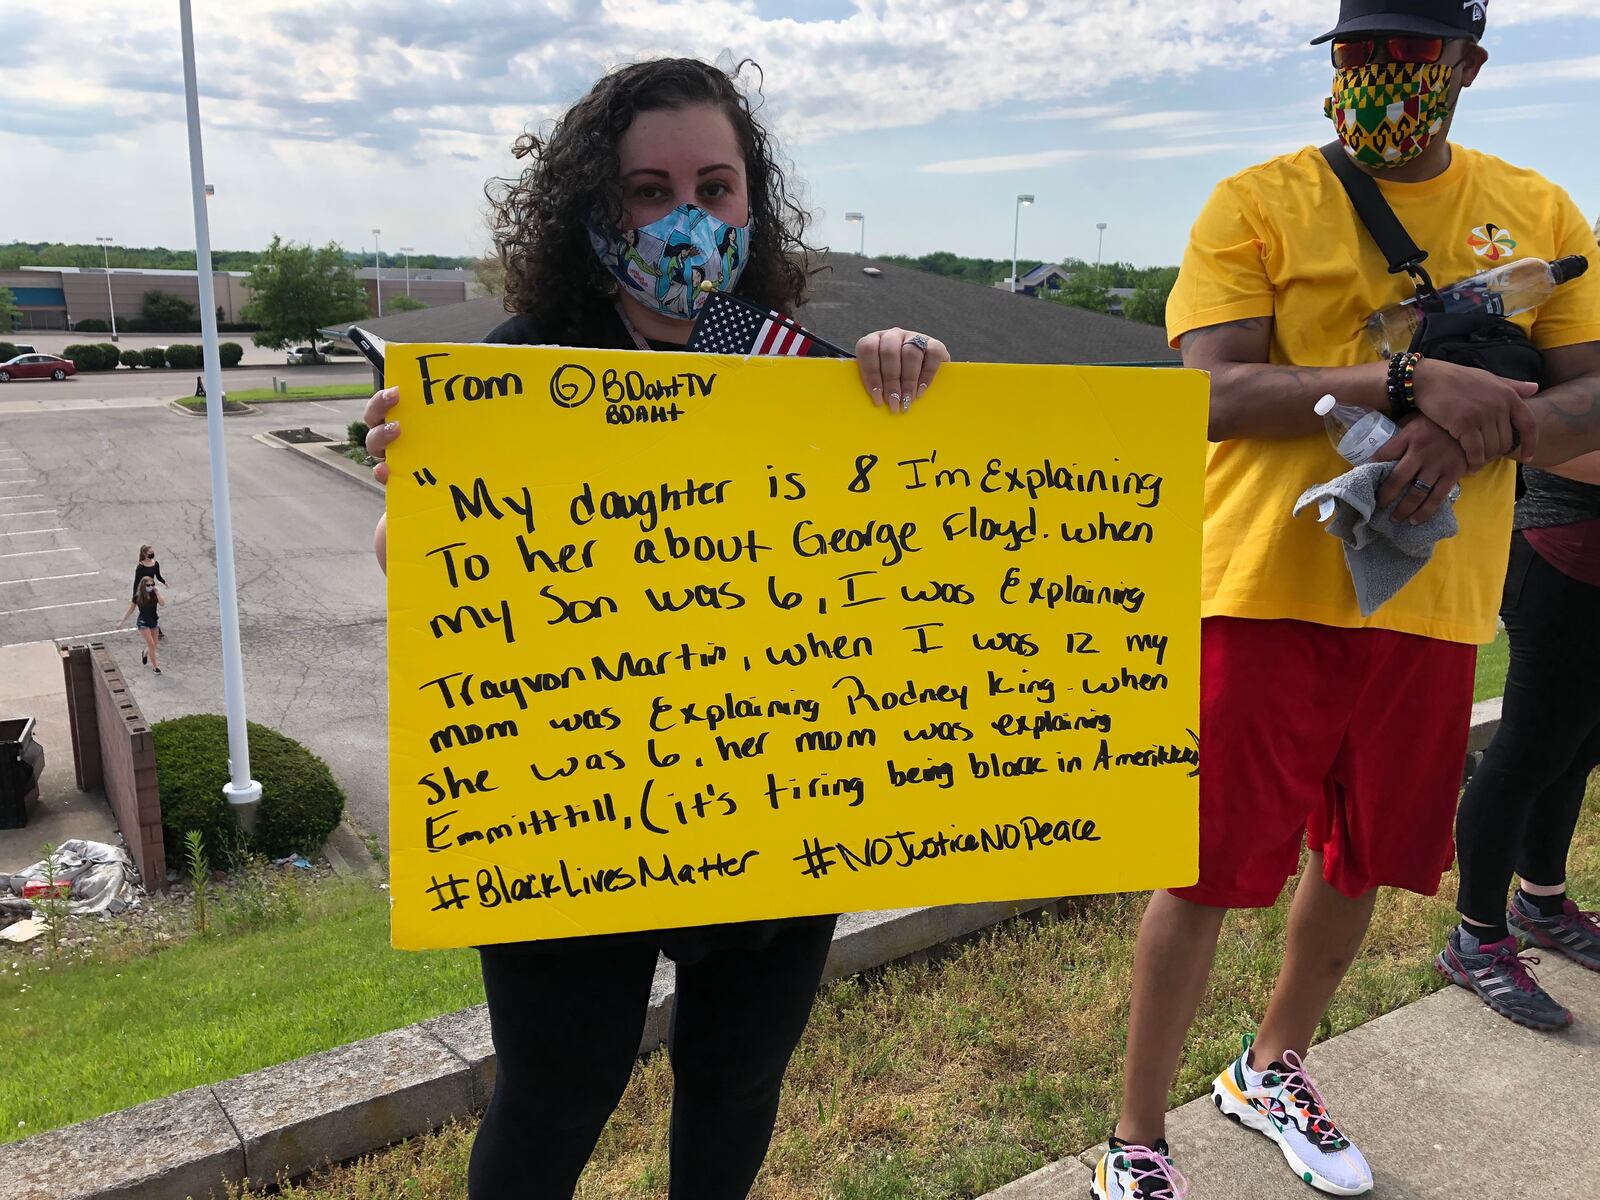 From @BDahtTV
BDAHt
"My daughter is 8 I'm Explaining
To her about George Floyd. when
my Son was 6, I was Explaining
Trayvon Martin, when I was 12 my
mom was Explaining Rodney King. when
she was 6, her mom was explaining
Emmitt till, (it's tiring being black in Amerikkka)
#BlackLivesMatter #NOJusticeNOPeace